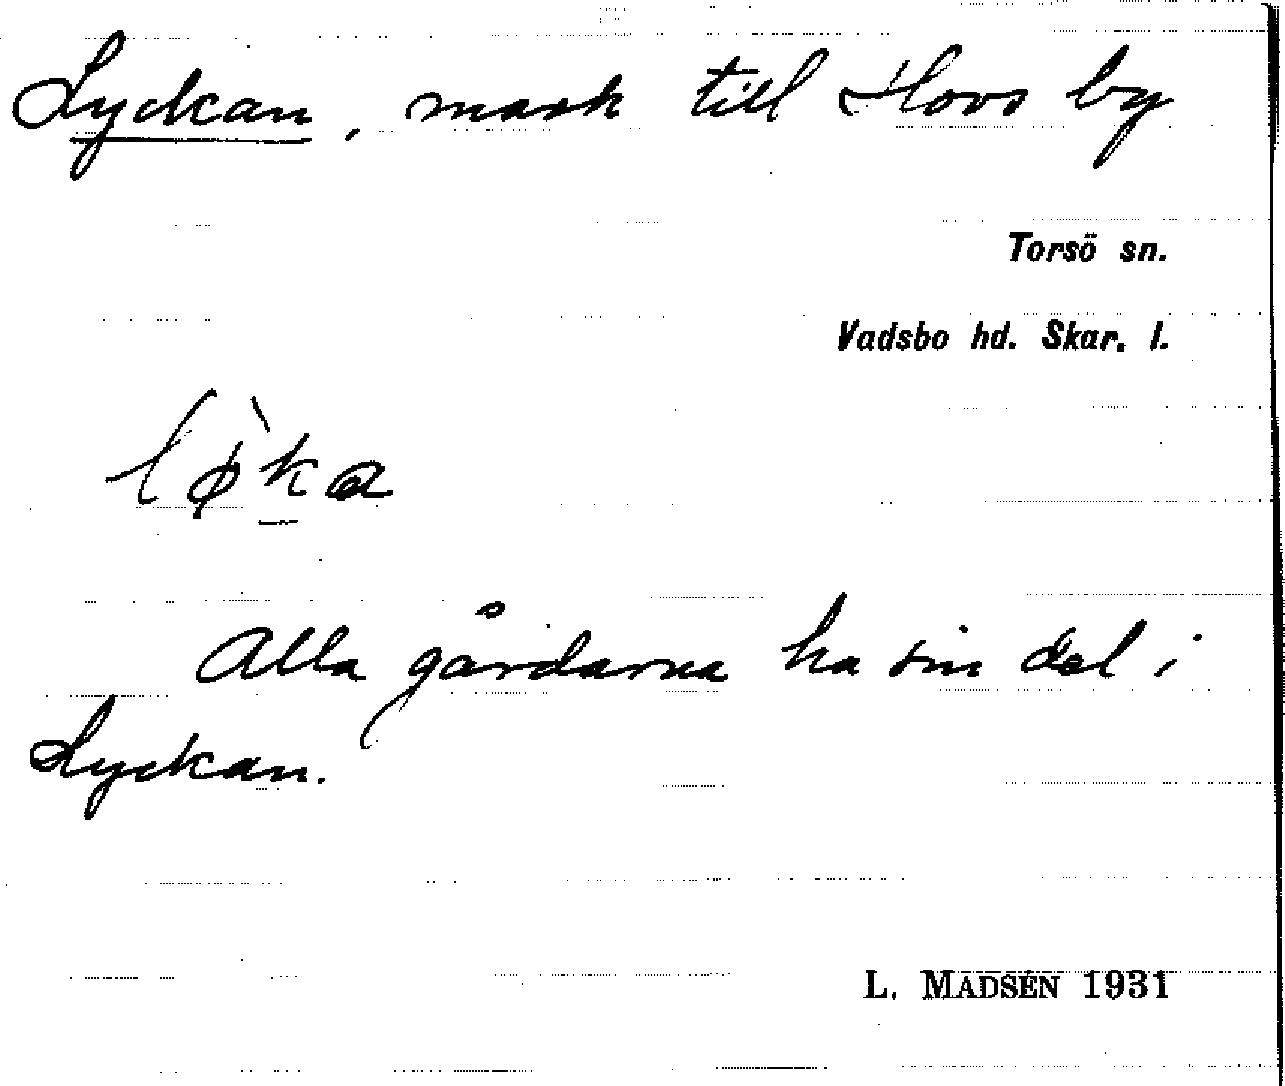 Lyckan, mark till Hovs by
Torsö sn.
Vadsbo hd. Skar. l.
lø̀ka
Alla gårdarna ha sin del i
Lyckan.
L. MADSÉN 1931